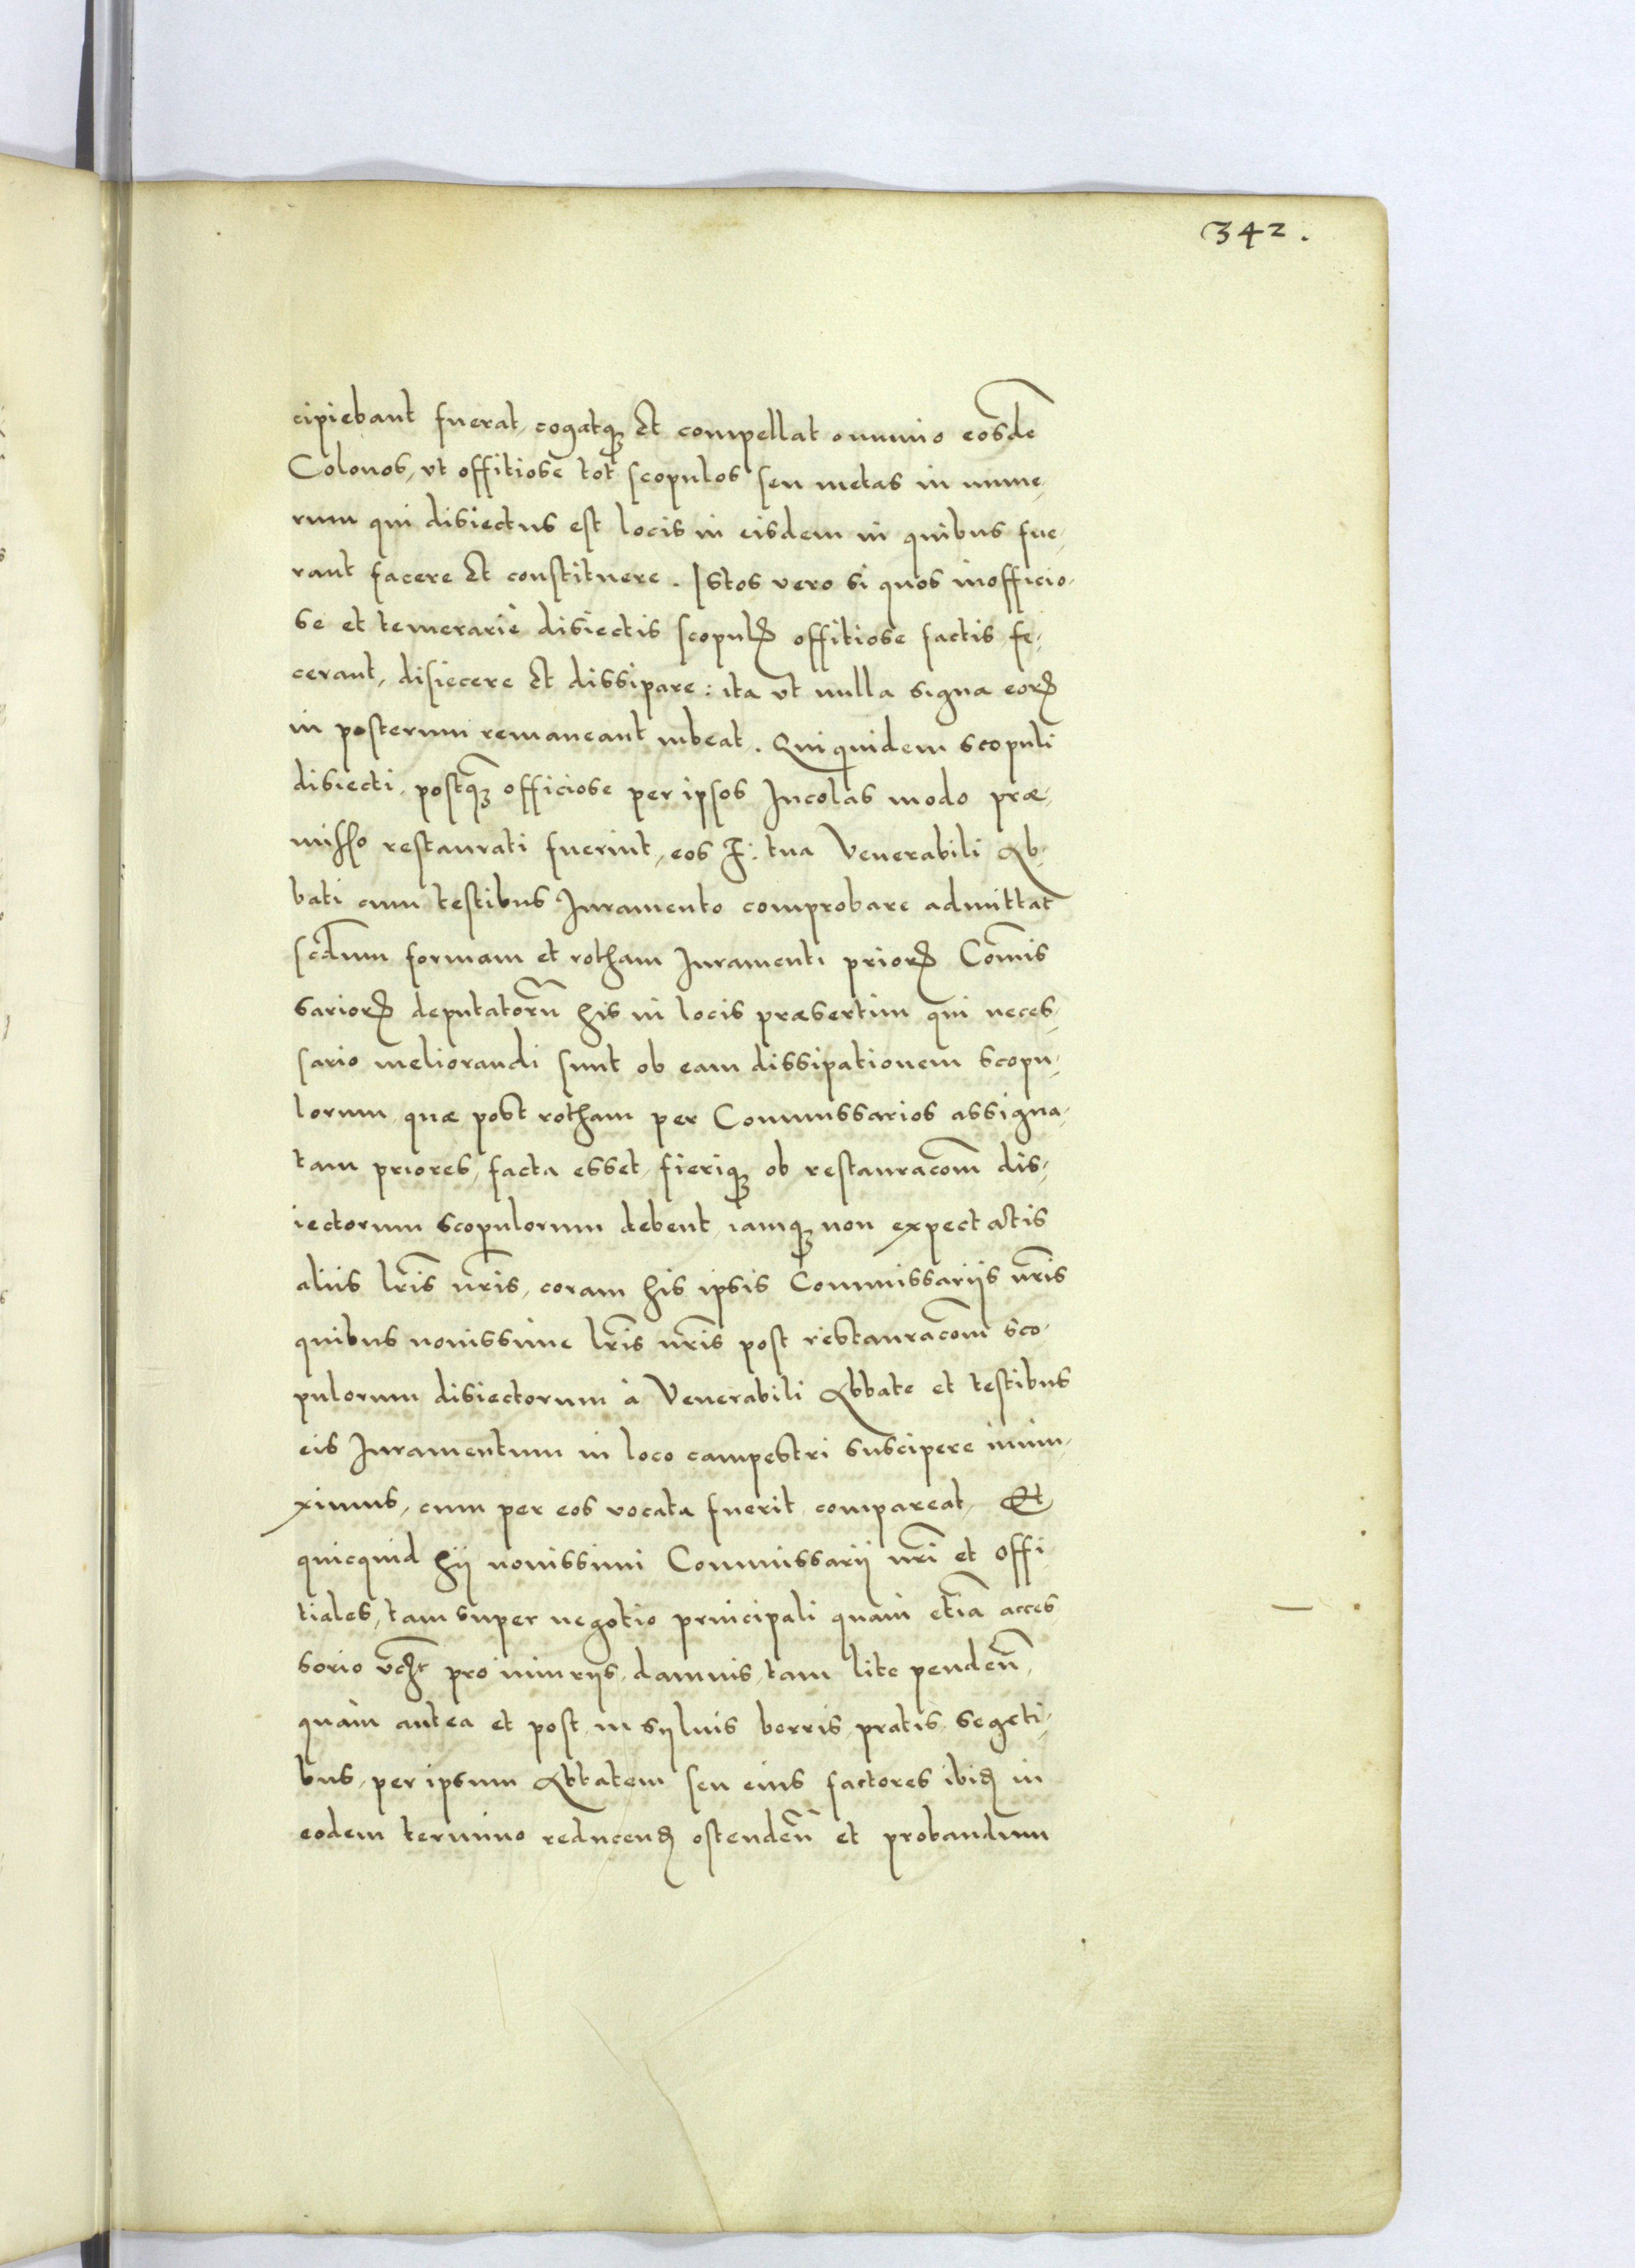 342.
cipiebant fuerat, cogatq̃ Et compellat omnino eosdẽ
Colonos, vt offitiose tot scopulos seu metas in nume,
rum qui disiectus est locis in eisdem in quibus fue,
rant facere Et constituere. Istos vero si quos inofficio,
se et temerariè disiectis scopulꝝ offitiose factis fe,
cerant, disiecere Et dissipare: ita vt nulla signa eorꝝ
in posterum remaneant iubeat. Qui quidem scopuli
disiecti, postq̃ officiose per ipsos Incolas modo præ,
misso restaurati fuerint, eos F: tua Venerabili Ab,
bati cum testibus Iuramento comprobare admittat
secdum formam et rotham Iuramenti priorꝝ Com̃is
sariorꝝ deputatorũ his in locis præsertim qui neces,
sario meliorandi sunt ob eam dissipationem scopu,
lorum, quæ post rotham per Commissarios assigna,
tam priores, facta esset, fieriq̃ ob restauracõm dis,
iectorum scopulorum debent, iamq̃ non expectatis
aliis lr̃is nr̃is, coram his ipsis Commissariis nr̃is
quibus nouissime lr̃is nr̃is post restauracõm sco,
pulorum disiectorum à Venerabili Abbate et testibus
eis Iuramentum in loco campestri suscipere iniun,
ximus, cum per eos vocata fuerit, compareat, Et
quicquid hij nouissimi Commissarij nr̃i et Offi
tiales, tam super negotio principali quam etiã acces
sorio pro iniurijs, damnis, tam lite pendeñ,
quàm antea et post, in syluis borris, pratis, segeti,
bus, per ipsum Abbatem seu eius factores ibiꝺ in
eodem termino reducenꝺ ostendeñ et probandum